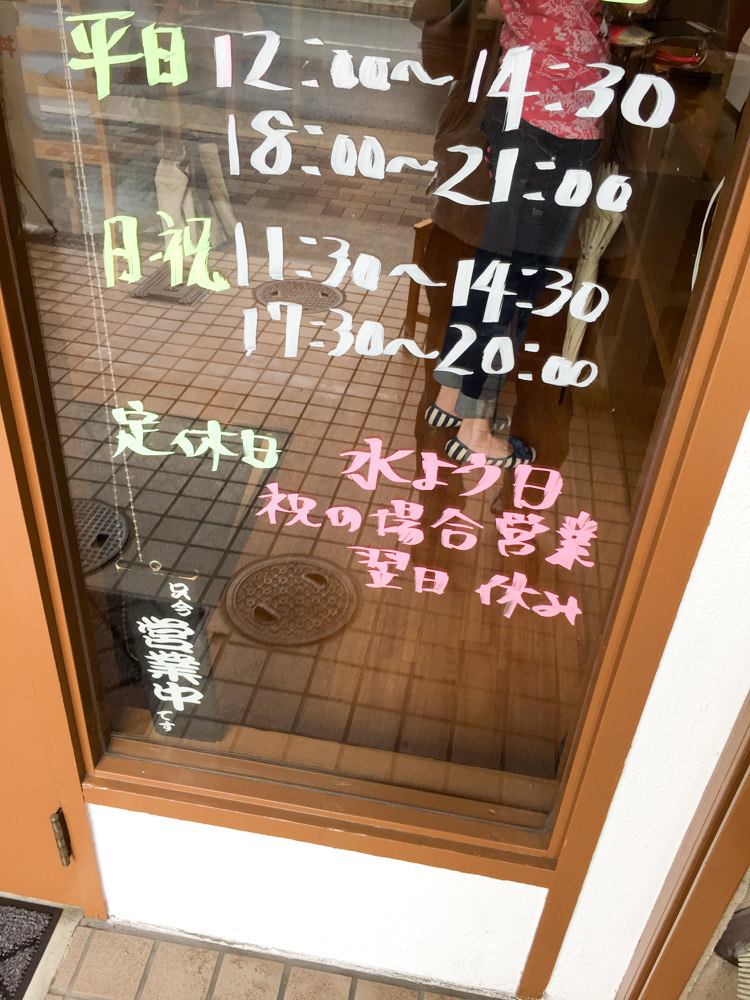 平日 12:00～14:30
18:00～21:00
日・祝 11:30～14:30
17:30～20:00
定休日 水よう日
祝の場合営業
翌日 休み
只今
営業中
です